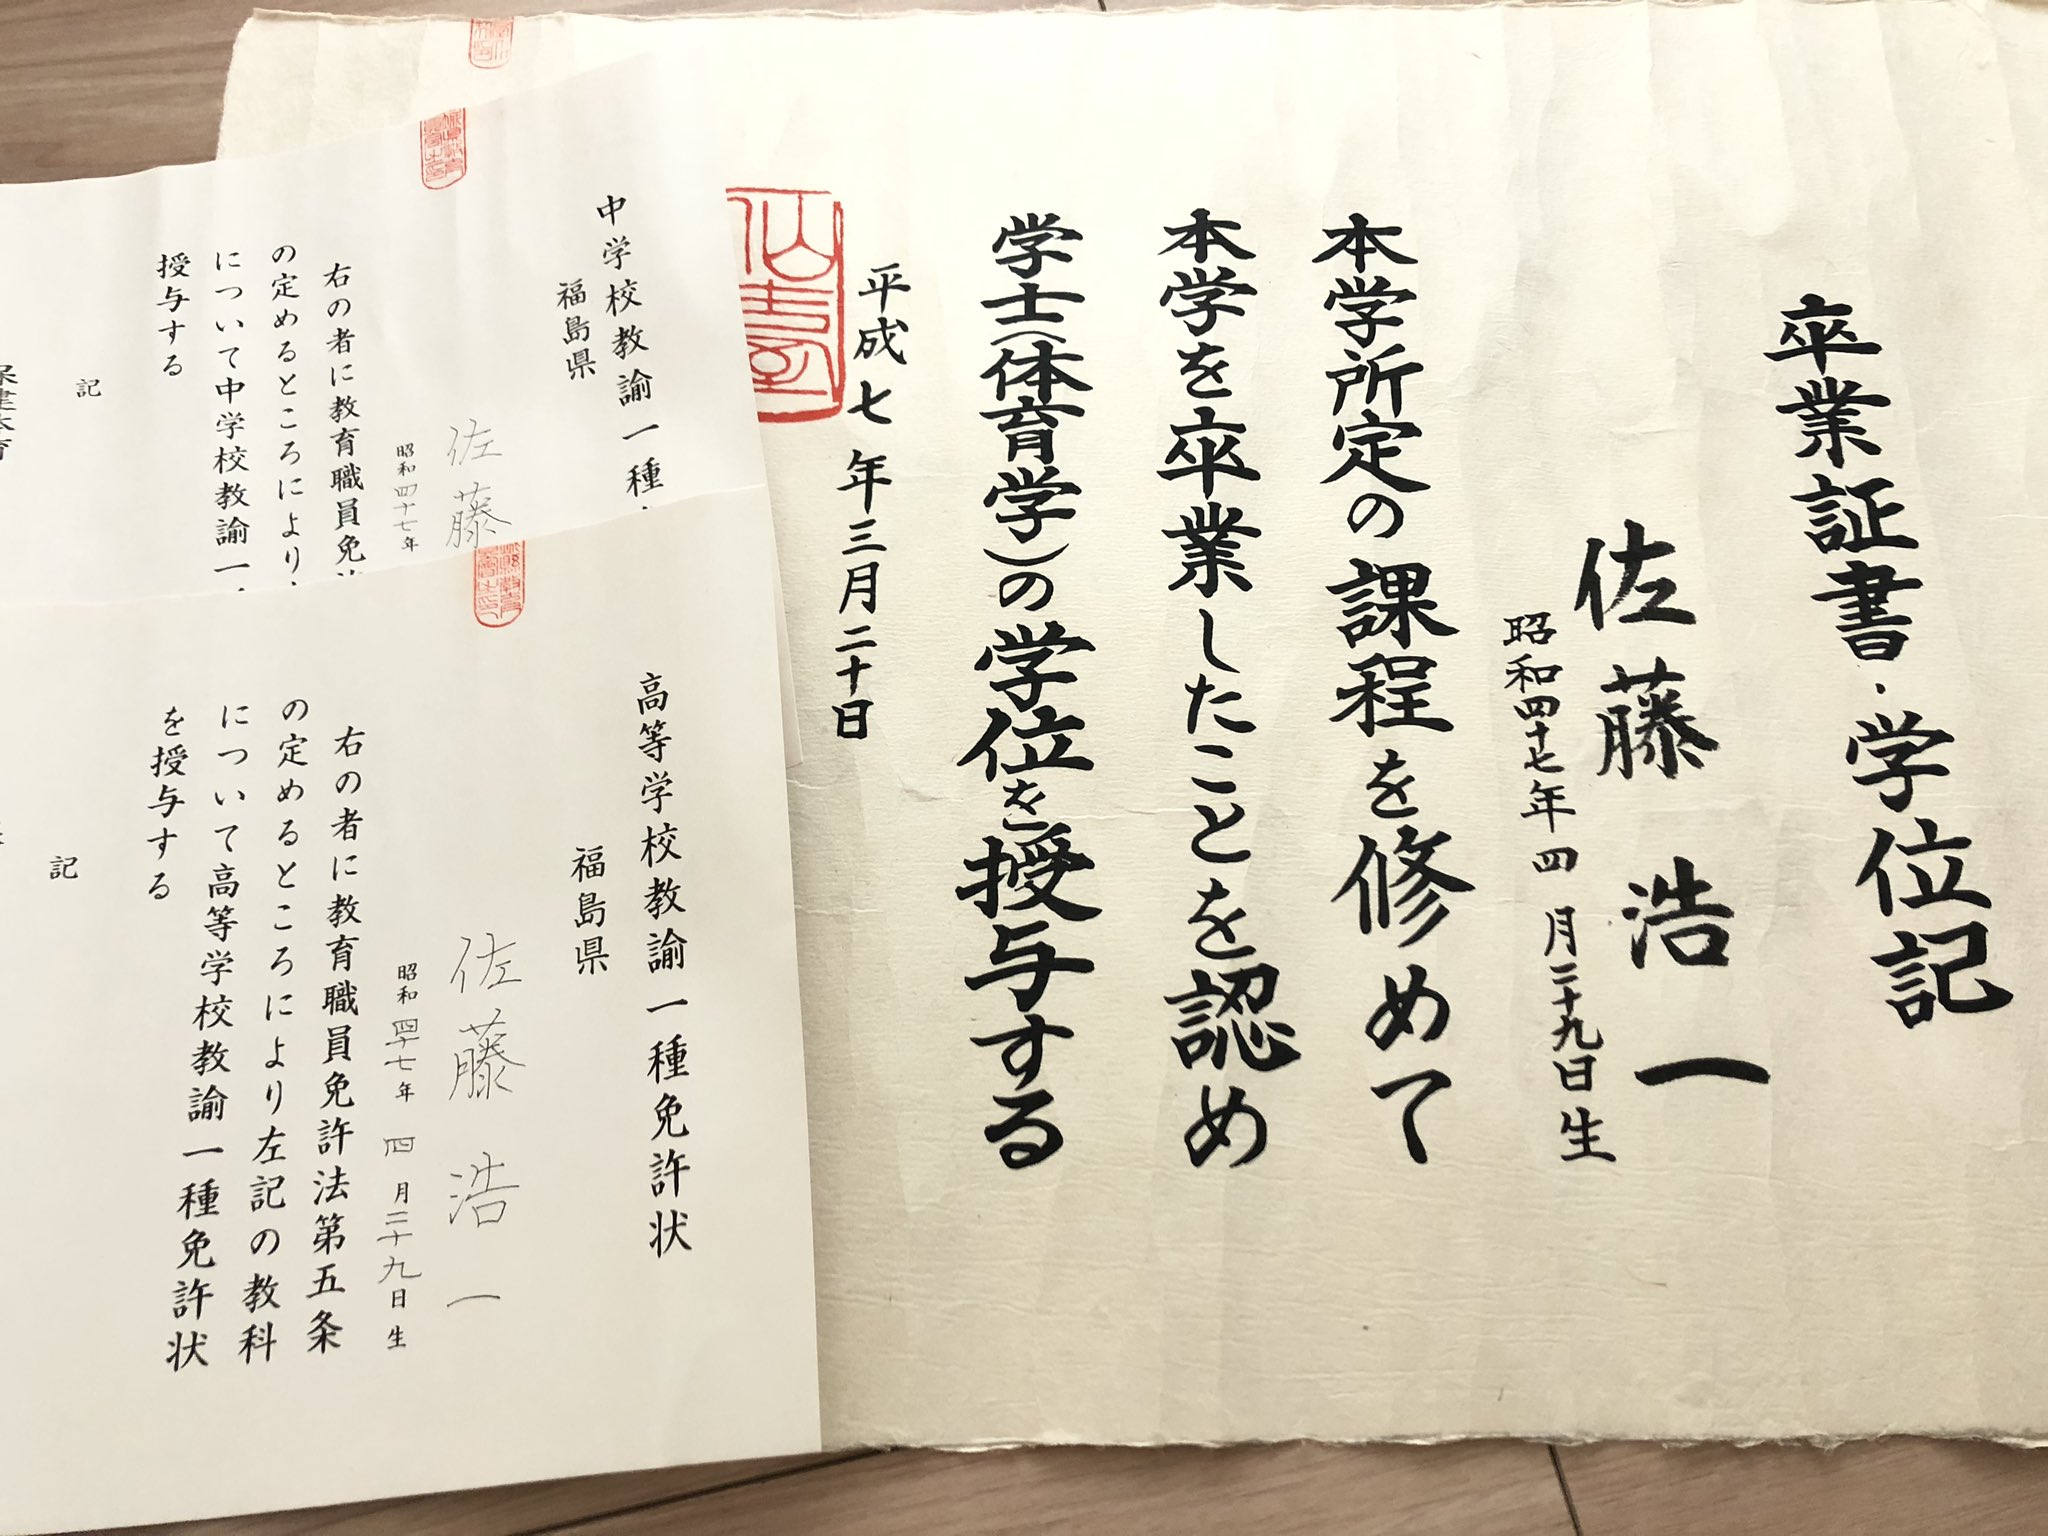 卒業証書・学位記
佐藤浩一
昭和四十七年四月二十九日生
本学所定の課程を修めて
本学を卒業したことを認め
学士(体育学)の学位を授与する
平成七年三月二十日
中学校教諭一種
福島県
佐藤
昭和四十七年
右の者に教育職員免
の定めるところにより
について中学校教諭一
授与する
記
保健体育
高等学校教諭一種免許状
福島県
佐藤浩一
昭和四十七年四月二十九日生
右の者に教育職員免許法第五条
の定めるところにより左記の教科
について高等学校教諭一種免許状
を授与する
記